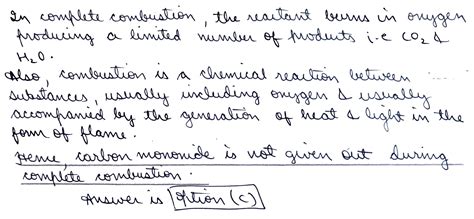 In complete combustion, the reactant burns in oxygen
producing a limited number of products i.e CO₂ &
H₂O.
Also, combustion is a chemical reaction between
substances, usually including oxygen & usually
accompanied by the generation of heat & light in the
form of flame.
Hence, carbon monoxide is not given out during
complete combustion.
Answer is Option (C)